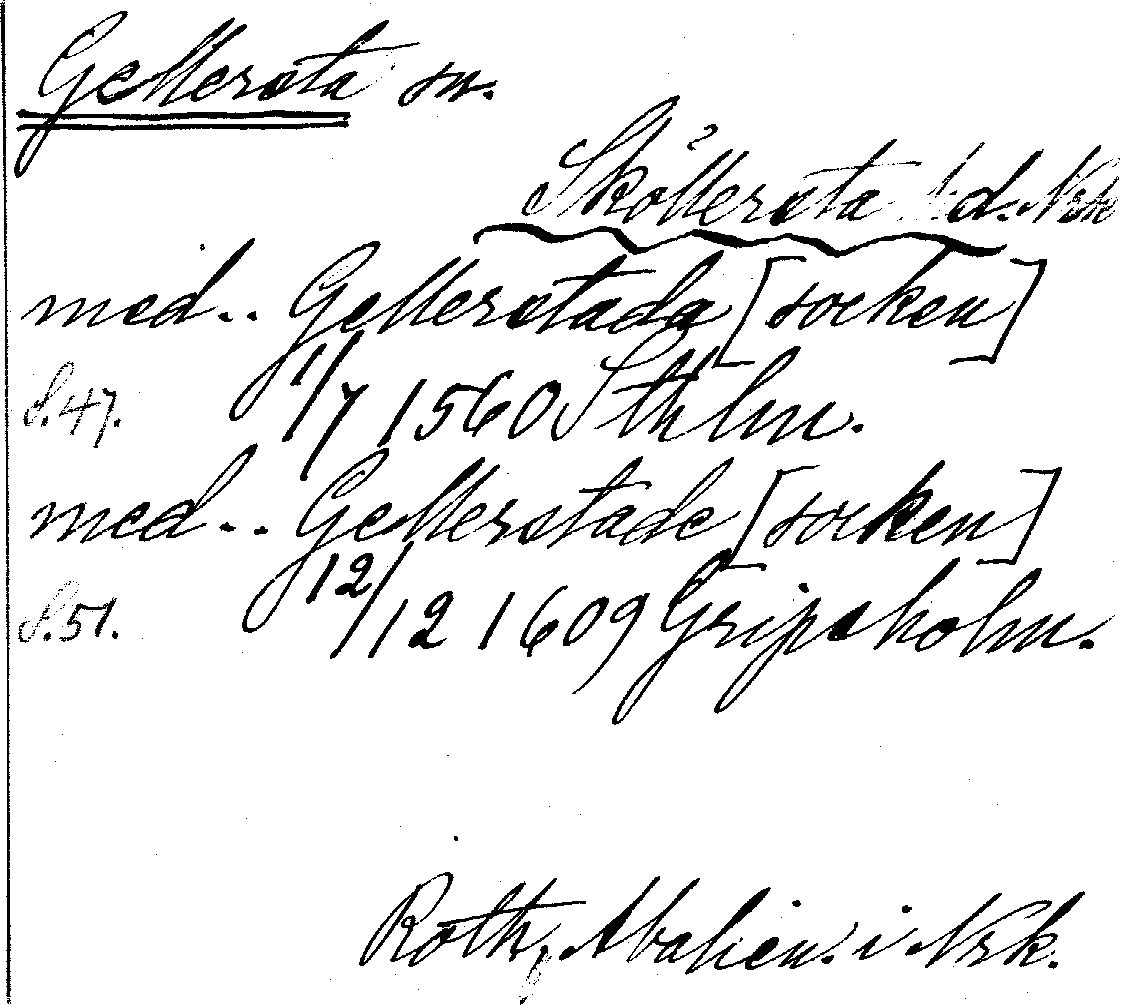 Gellersta sn.
Sköllersta hd. Nrk
med.. Gellerstada [socken]
S.47. 1/7 1560 Sthlm.
med.. Gellerstade [socken]
S.51. 12/12 1609 Gripsholm.
Roth, Abalien. i Nrk.